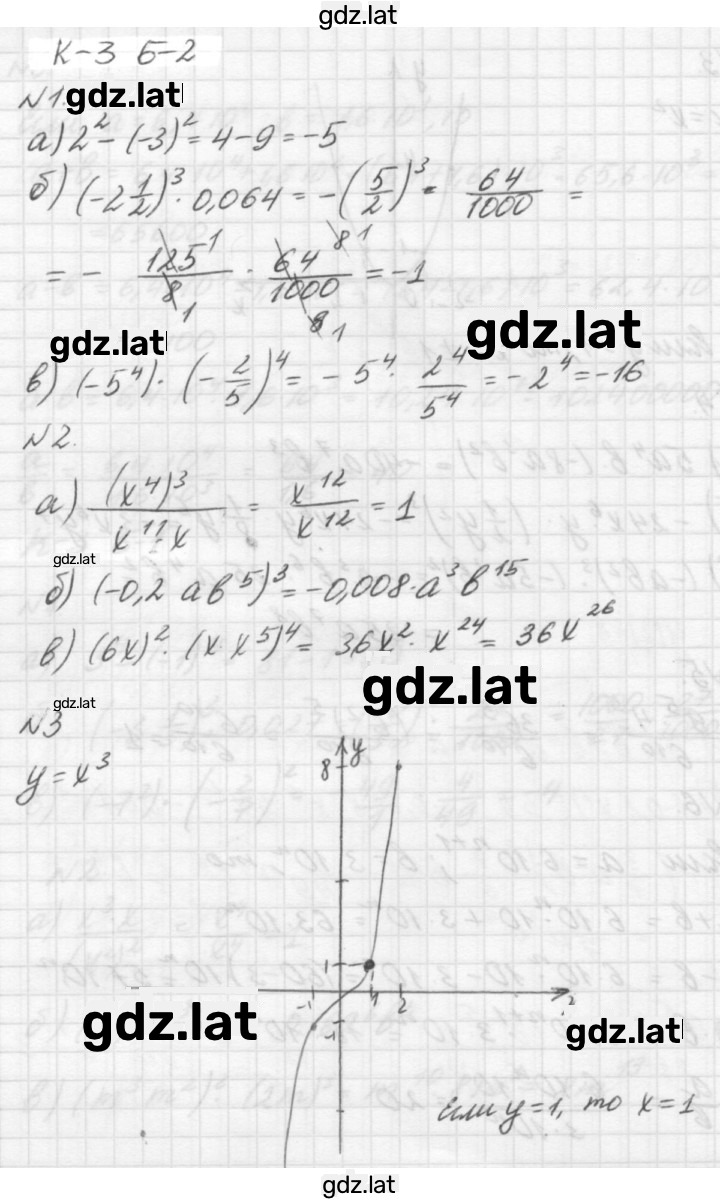 gdz.lat
К-3 Б-2
№1. gdz.lat
а) 2² - (-3)² = 4 - 9 = -5
б) (-2 1/2)³ · 0,064 = -(5/2)³ · 64/1000 =
= - 125/8 · 64/1000 = -1
gdz.lat gdz.lat
в) (-5⁴) · (-2/5)⁴ = -5⁴ · 2⁴/5⁴ = -2⁴ = -16
№2.
а) (x⁴)³/x¹¹·x = x¹²/x¹² = 1
gdz.lat
б) (-0,2 ab⁵)³ = -0,008·a³b¹⁵
в) (6x)² · (x·x⁵)⁴ = 36x² · x²⁴ = 36x²⁶
gdz.lat
gdz.lat
№3
y = x³
y
8
1
-1 1 2
-1
gdz.lat gdz.lat
Если y=1, то x=1
gdz.lat